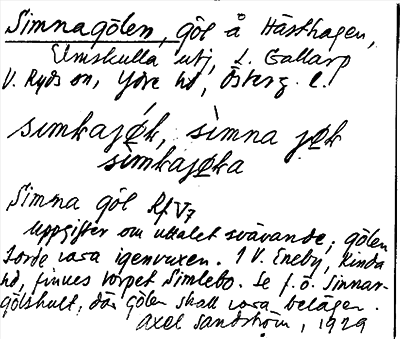 Simnagölen, göl å Hästhagen,
Elmskulla utj, L. Gallarp
V. Ryds sn, Ydre hd, Österg. l.
sìmkajøk, sìmna jøk
sìmkajøka
Simna göl Rf V7
Uppgifter om uttalet svävande; gölen
torde vara igenvuxen. I V. Eneby, Kinda
hd, finnes torpet Simlebo. Se f. ö. Simnar-
gölshult, där gölen skall vara belägen.
Axel Sandström, 1929